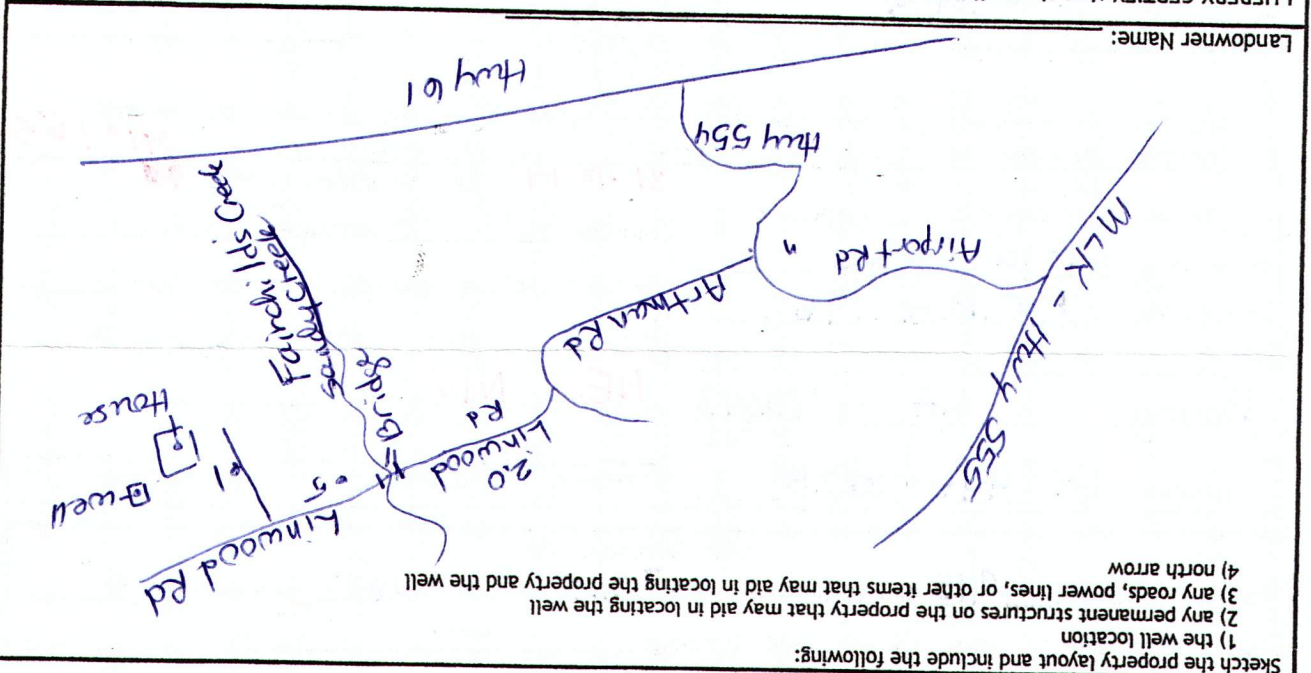 Sketch the property layout and include the following:
1) the well location
2) any permanent structures on the property that may aid in locating the well
3) any roads, power lines, or other items that may aid in locating the property and the well
4) north arrow
Linwood Rd
.5
well
.1
House
2.0
Linwood
Rd
Bridge
MLK - Hwy 555
Artman Rd
Sandy Creek
Fairchilds Creek
Airport Rd
"
Hwy 554
Hwy 61
Landowner Name:
I HEREBY CERTIFY